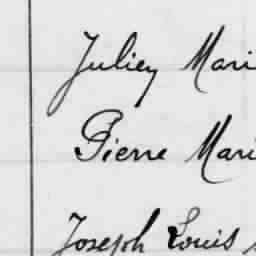 Juliey Mari
Pierre Mari
Joseph Louis